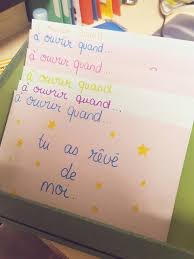 à ouvrir quand...
à ouvrir quand...
à ouvrir quand
à ouvrir quand...
à ouvrir quand...
tu as rêvé
de
moi...